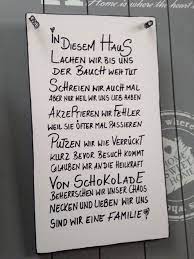 Home is where the heart
In diesem Haus
lachen wir bis uns
der Bauch weh tut
Schreien wir auch mal
aber nur weil wir uns lieb haben
Akzeptieren wir Fehler
weil sie öfter mal passieren
Putzen wir wie verrückt
kurz bevor Besuch kommt
Glauben wir an die Heilkraft
von Schokolade
Beherrschen wir unser Chaos
Necken und lieben wir uns
sind wir eine Familie!